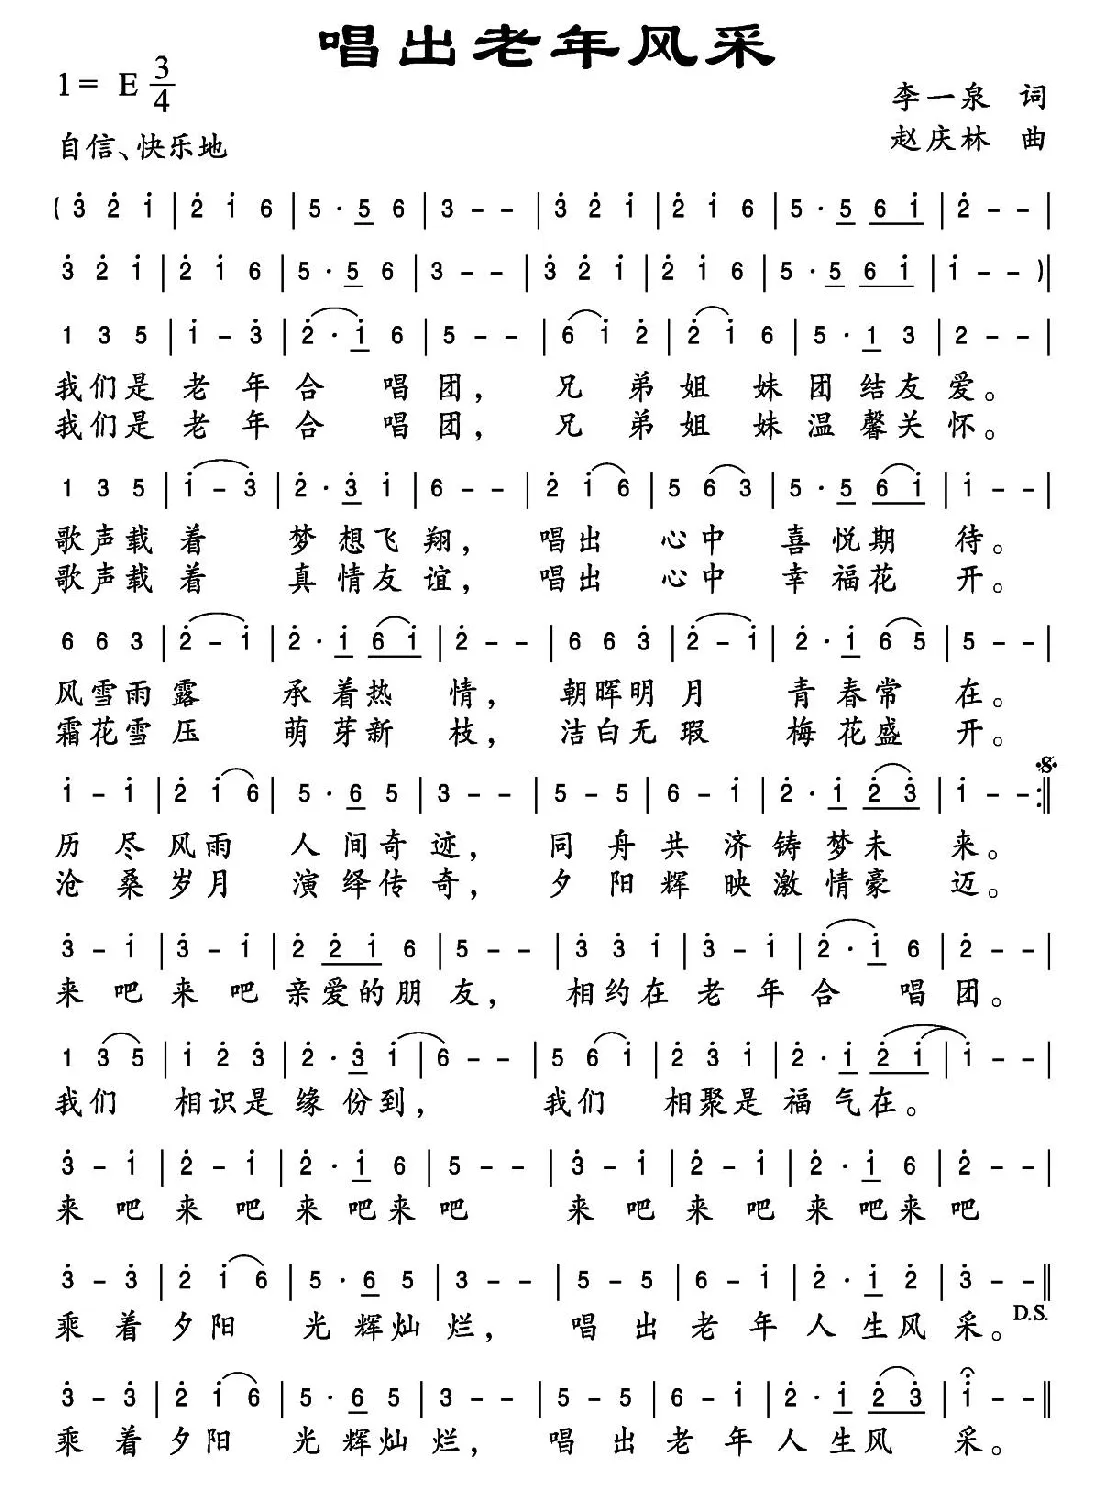 唱出老年风采
1= E 3/4
李一泉 词
自信、快乐地
赵庆林 曲
( 3̇ 2̇ 1̇ | 2̇ 1̇ 6 | 5 · 5 6 | 3 - - | 3̇ 2̇ 1̇ | 2̇ 1̇ 6 | 5 · 5 6 1̇ | 2̇ - - |
3̇ 2̇ 1̇ | 2̇ 1̇ 6 | 5 · 5 6 | 3 - - | 3̇ 2̇ 1̇ | 2̇ 1̇ 6 | 5 · 5 6 1̇ | 1̇ - - )|
1 3 5 | 1̇ - 3̇ | 2̇ · 1̇ 6 | 5 - - | 6 1̇ 2̇ | 2̇ 1̇ 6 | 5 · 1 3 | 2 - - |
我们是 老 年 合 唱 团， 兄 弟 姐 妹 团 结 友 爱。
我们是 老 年 合 唱 团， 兄 弟 姐 妹 温 馨 关 怀。
1 3 5 | 1̇ - 3̇ | 2̇ · 3̇ 1̇ | 6 - - | 2̇ 1̇ 6 | 5 6 3 | 5 · 5 6 1̇ | 1̇ - - |
歌声载 着 梦 想 飞 翔， 唱 出 心 中 喜 悦 期 待。
歌声载 着 真 情 友 谊， 唱 出 心 中 幸 福 花 开。
6 6 3 | 2̇ - 1̇ | 2̇ · 1̇ 6 1̇ | 2̇ - - | 6 6 3̇ | 2̇ - 1̇ | 2̇ · 1̇ 6 5 | 5 - - |
风雪雨 露 承 着 热 情， 朝晖明 月 青 春 常 在。
霜花雪 压 萌 芽 新 枝， 洁白无 瑕 梅 花 盛 开。
1̇ - 1̇ | 2̇ 1̇ 6 | 5 · 6 5 | 3 - - | 5 - 5 | 6 - 1̇ | 2̇ · 1̇ 2̇ 3̇ | 1̇ - - :‖
历 尽 风 雨 人 间 奇 迹， 同 舟 共 济 铸 梦 未 来。
沧 桑 岁 月 演 绎 传 奇， 夕 阳 辉 映 激 情 豪 迈。
3̇ - 1̇ | 3̇ - 1̇ | 2̇ 2̇ 1̇ 6 | 5 - - | 3̇ 3̇ 1̇ | 3̇ - 1̇ | 2̇ · 1̇ 6 | 2̇ - - |
来 吧 来 吧 亲爱的 朋 友， 相约在 老 年 合 唱 团。
1 3 5 | 1̇ 2̇ 3̇ | 2̇ · 3̇ 1̇ | 6 - - | 5 6 1̇ | 2̇ 3̇ 1̇ | 2̇ · 1̇ 2̇ 1̇ | 1̇ - - |
我们 相识是 缘 份到， 我们 相聚是 福 气在。
3̇ - 1̇ | 2̇ - 1̇ | 2̇ · 1̇ 6 | 5 - - | 3̇ - 1̇ | 2̇ - 1̇ | 2̇ · 1̇ 6 | 2̇ - - |
来 吧 来 吧 来 吧来 吧 来 吧 来 吧 来 吧来 吧
3̇ - 3̇ | 2̇ 1̇ 6 | 5 · 6 5 | 3 - - | 5 - 5 | 6 - 1̇ | 2̇ · 1̇ 2̇ | 3̇ - - ‖
乘 着 夕 阳 光 辉 灿 烂， 唱 出 老 年 人 生 风 采。 D.S.
3̇ - 3̇ | 2̇ 1̇ 6 | 5 · 6 5 | 3 - - | 5 - 5 | 6 - 1̇ | 2̇ · 1̇ 2̇ 3̇ | 1̇ - - ‖
乘 着 夕 阳 光 辉 灿 烂， 唱 出 老 年 人 生 风 采。